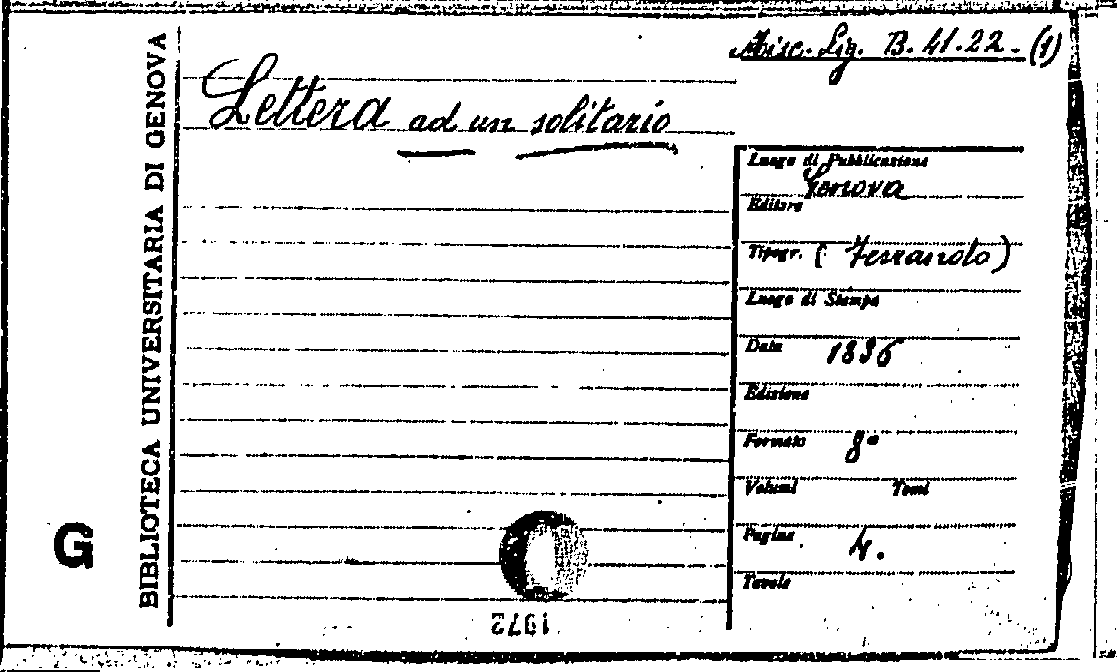 Misc. Lig. B. 41.22 - (1)
Lettera ad un solitario
BIBLIOTECA UNIVERSITARIA DI GENOVA
G
Luogo di Pubblicazione
Genova
Editore
Tipogr. ( Ferrando )
Luogo di Stampa
Data 1836
Edizione
Formato 8°
Volumi Tomi
Pagine 4.
Tavole
1972